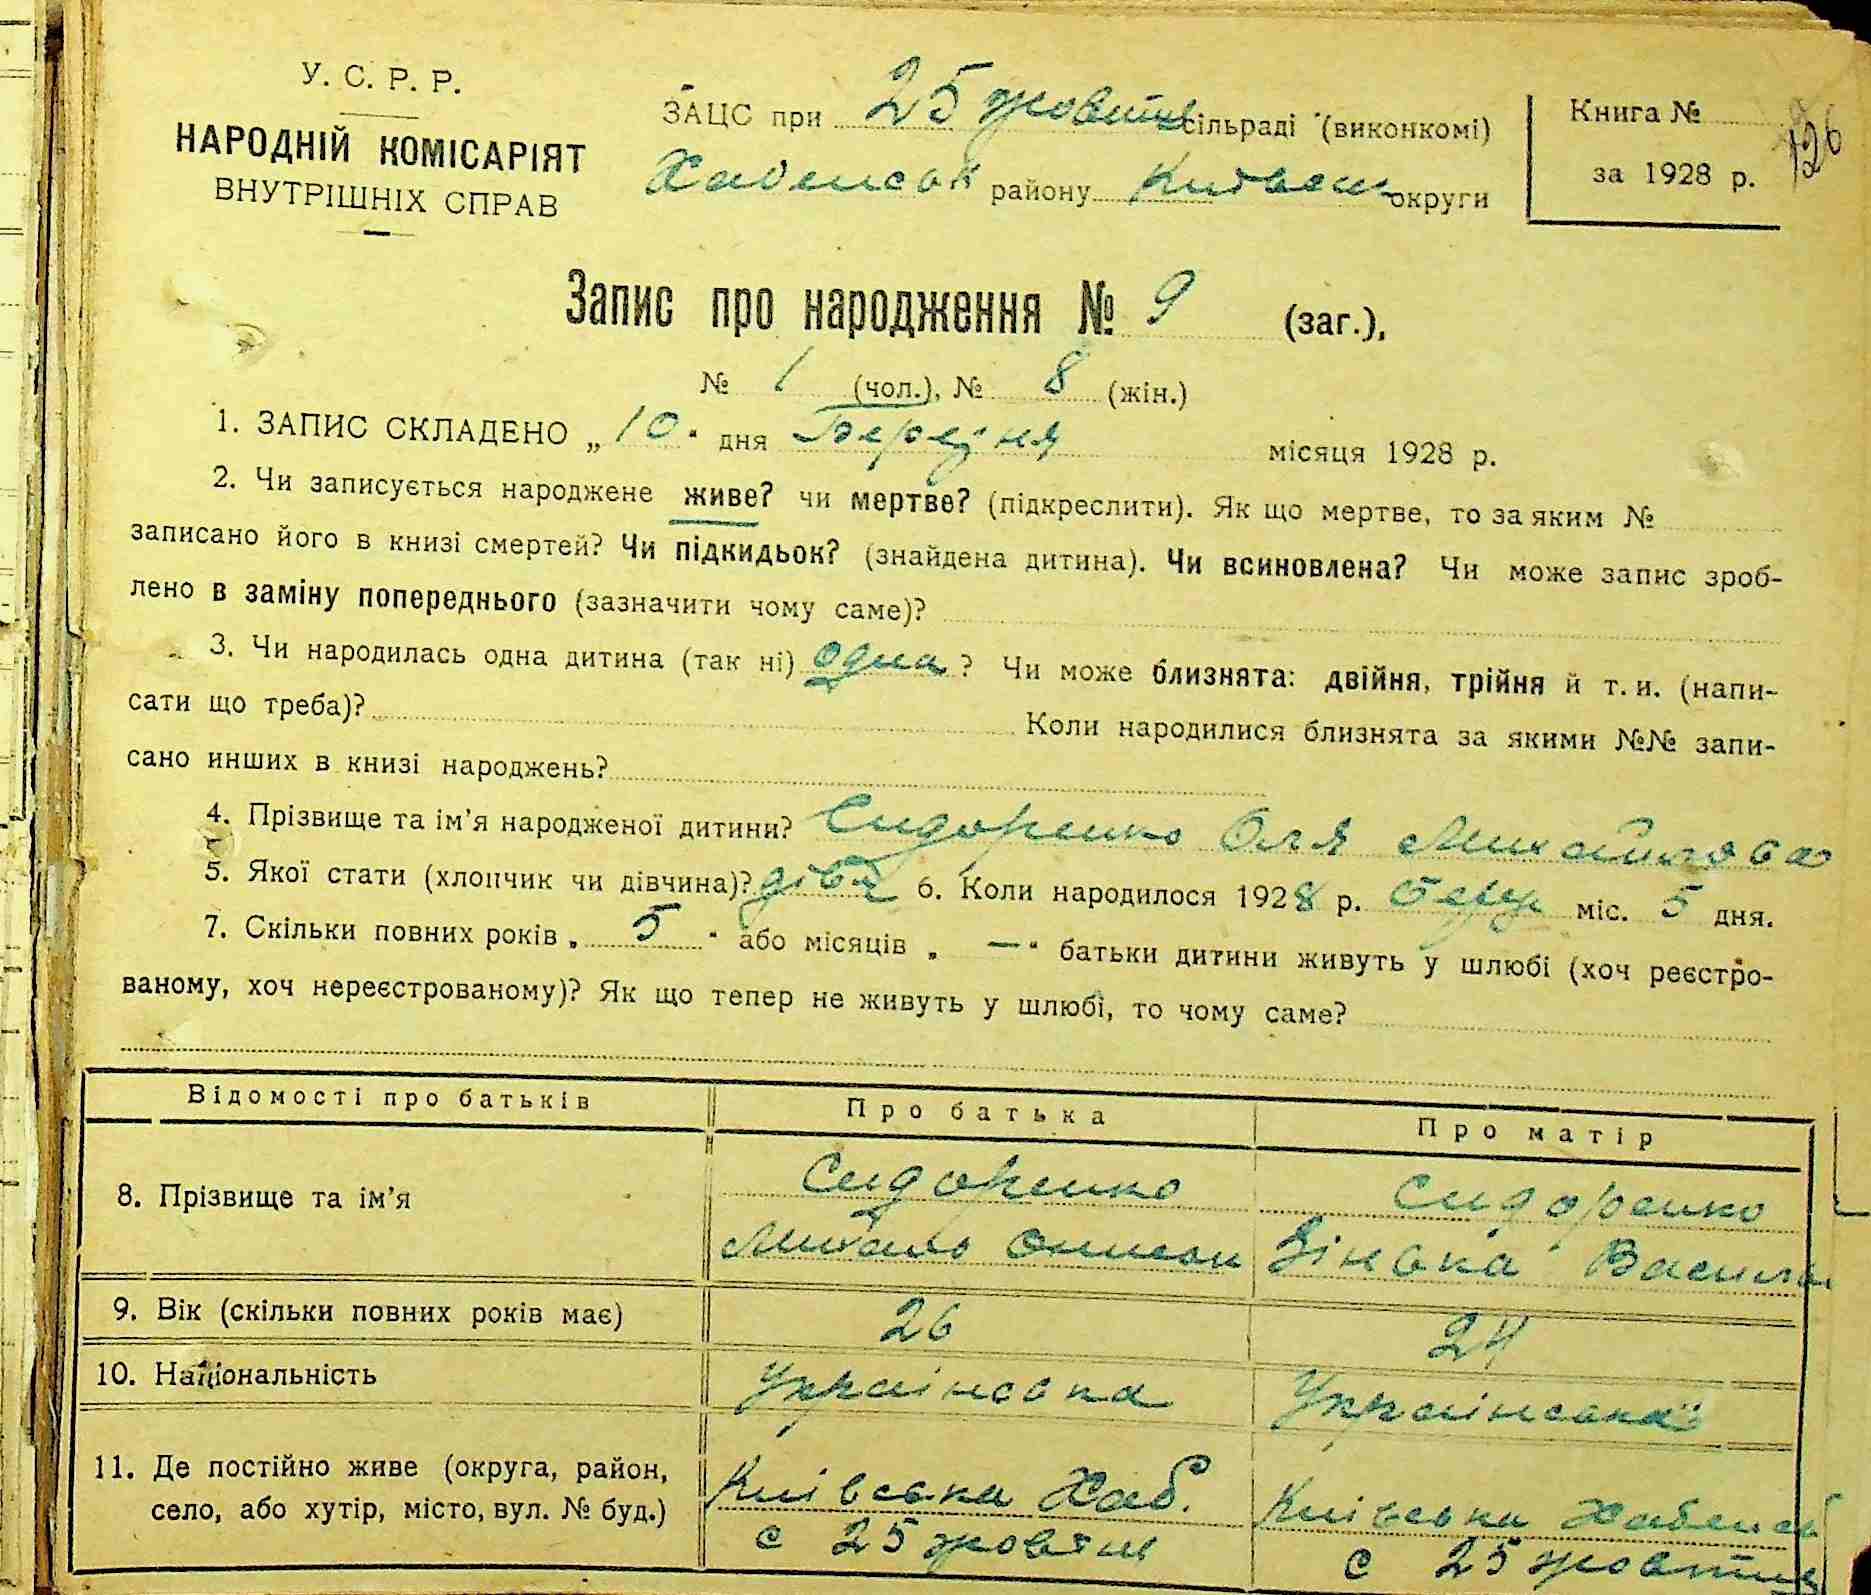 У. С. Р. Р.
НАРОДНІЙ КОМІСАРІЯТ
ВНУТРІШНІХ СПРАВ
ЗАЦС при 25 жовтня сільраді (виконкомі)
Хабенськ району Київськ округи
Книга №
126
за 1928 р.
Запис про народження № 9 (заг.),
№ 1 (чол.), № 8 (жін.)
1. ЗАПИС СКЛАДЕНО „ 10 " дня Березня місяця 1928 р.
2. Чи записується народжене живе? чи мертве? (підкреслити). Як що мертве, то за яким №
записано його в книзі смертей? Чи підкидьок? (знайдена дитина). Чи всиновлена? Чи може запис зроб-
лено в заміну попереднього (зазначити чому саме)?
3. Чи народилась одна дитина (так ні) одна ? Чи може близнята: двійня, трійня й т. и. (напи-
сати що треба)? Коли народилися близнята за якими №№ запи-
сано инших в книзі народжень?
4. Прізвище та ім'я народженої дитини? Сидоренко Оля Михайлова
5. Якої стати (хлопчик чи дівчина)? дівч 6. Коли народилося 1928 р. берез міс. 5 дня.
7. Скільки повних років „ 5 " або місяців „ — " батьки дитини живуть у шлюбі (хоч реєстро-
ваному, хоч нереєстрованому)? Як що тепер не живуть у шлюбі, то чому саме?
Відомості про батьків Про батька Про матір
8. Прізвище та ім'я Сидоренко Сидоренко
Михайло Зінька Василів
9. Вік (скільки повних років має) 26 24
10. Національність Українська Українська
11. Де постійно живе (округа, район, Київська Хаб. Київська Хабенськ
село, або хутір, місто, вул. № буд.) с 25 жовтня с 25 жовтня